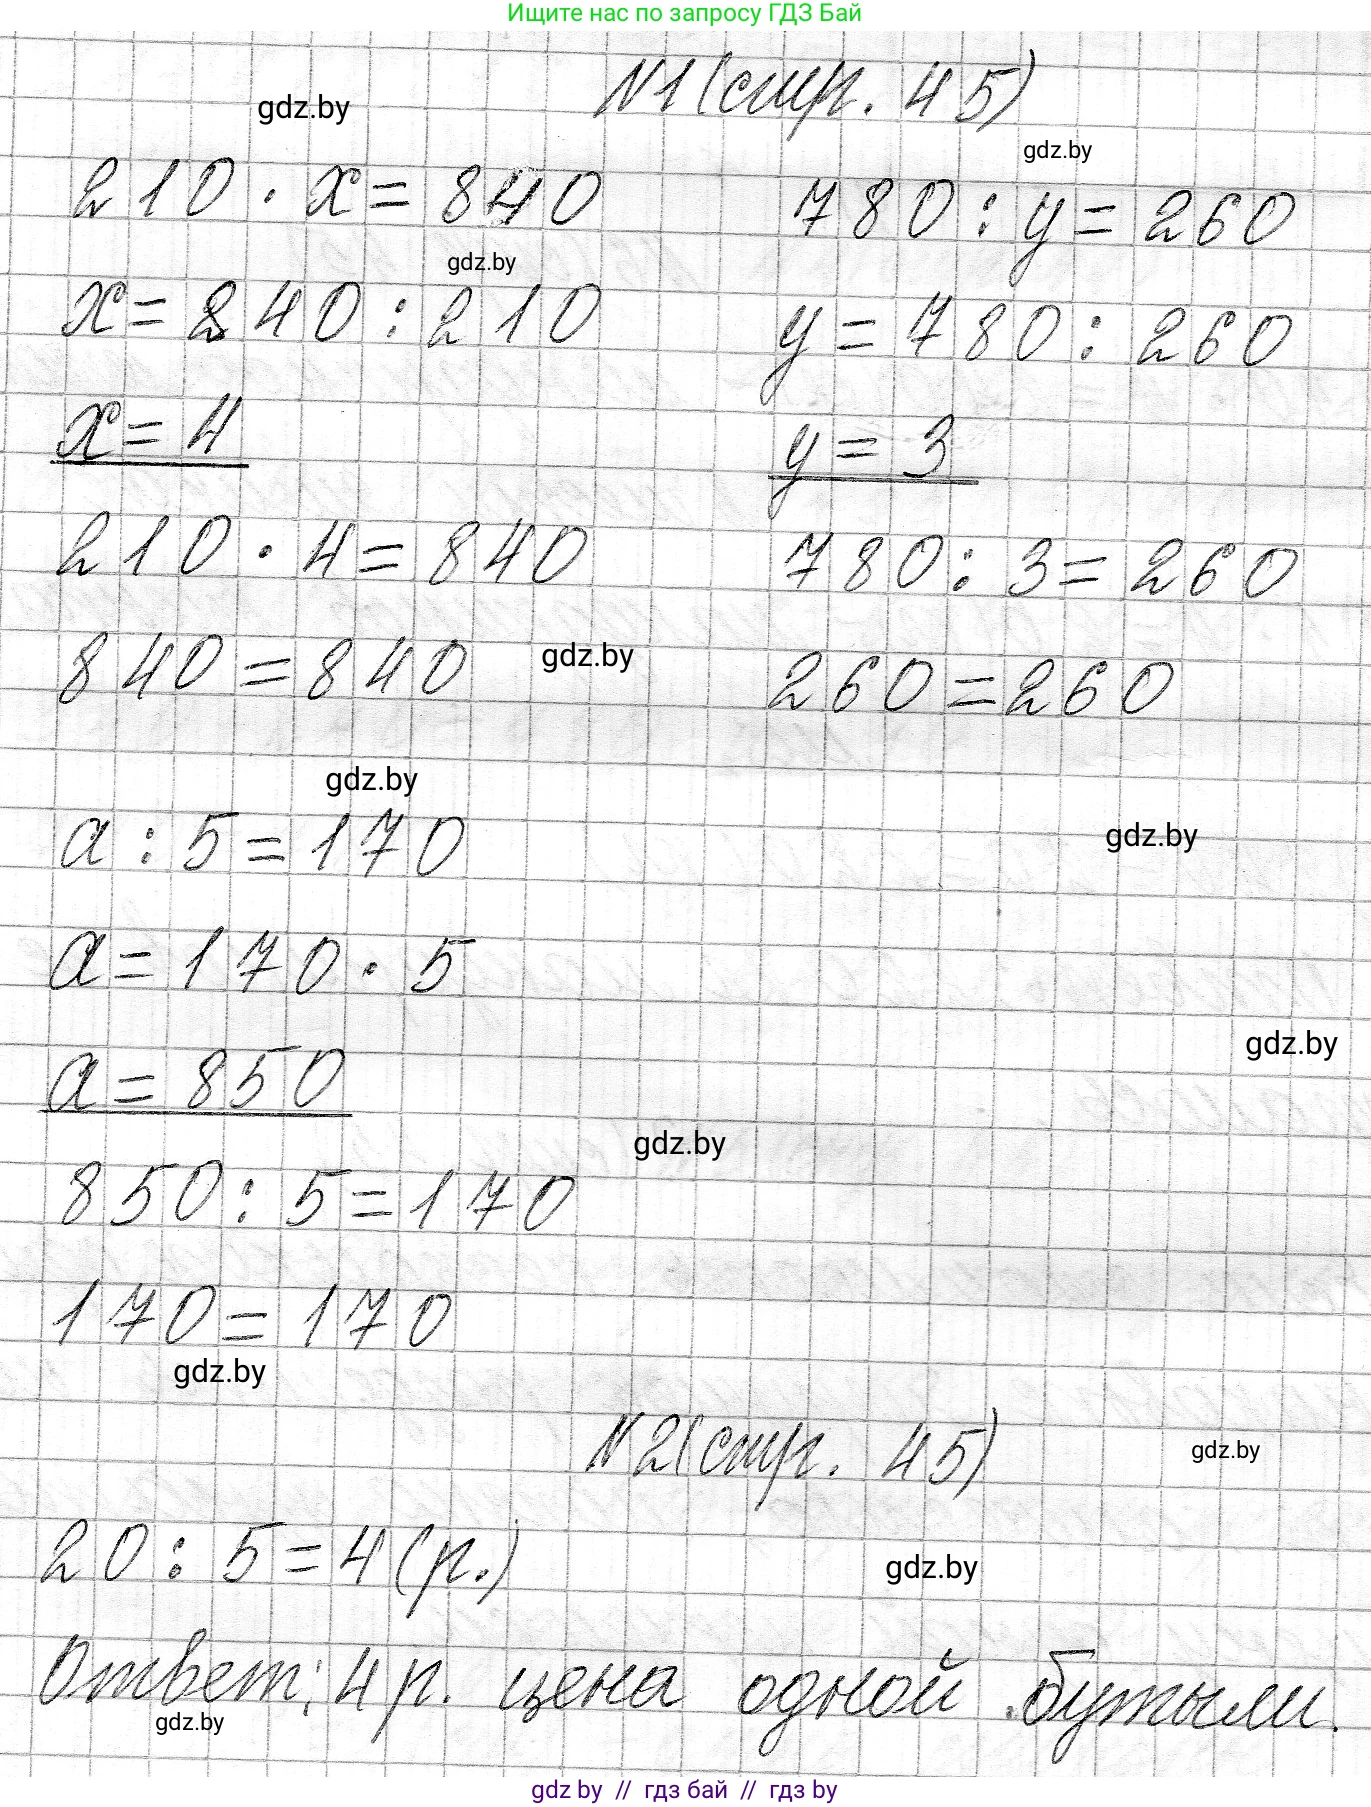 Ищите нас по запросу ГДЗ Бай
N1 (стр. 45)
gdz.by
gdz.by
210 · x = 840
780 : y = 260
gdz.by
x = 840 : 210
y = 780 : 260
x = 4
y = 3
210 · 4 = 840
780 : 3 = 260
840 = 840
gdz.by
260 = 260
gdz.by
a : 5 = 170
gdz.by
a = 170 · 5
gdz.by
a = 850
gdz.by
850 : 5 = 170
170 = 170
gdz.by
N2 (стр. 45)
gdz.by
20 : 5 = 4 (р.)
gdz.by
Ответ: 4 р. цена одной бутыли.
gdz.by
gdz by // гдз бай // гдз by